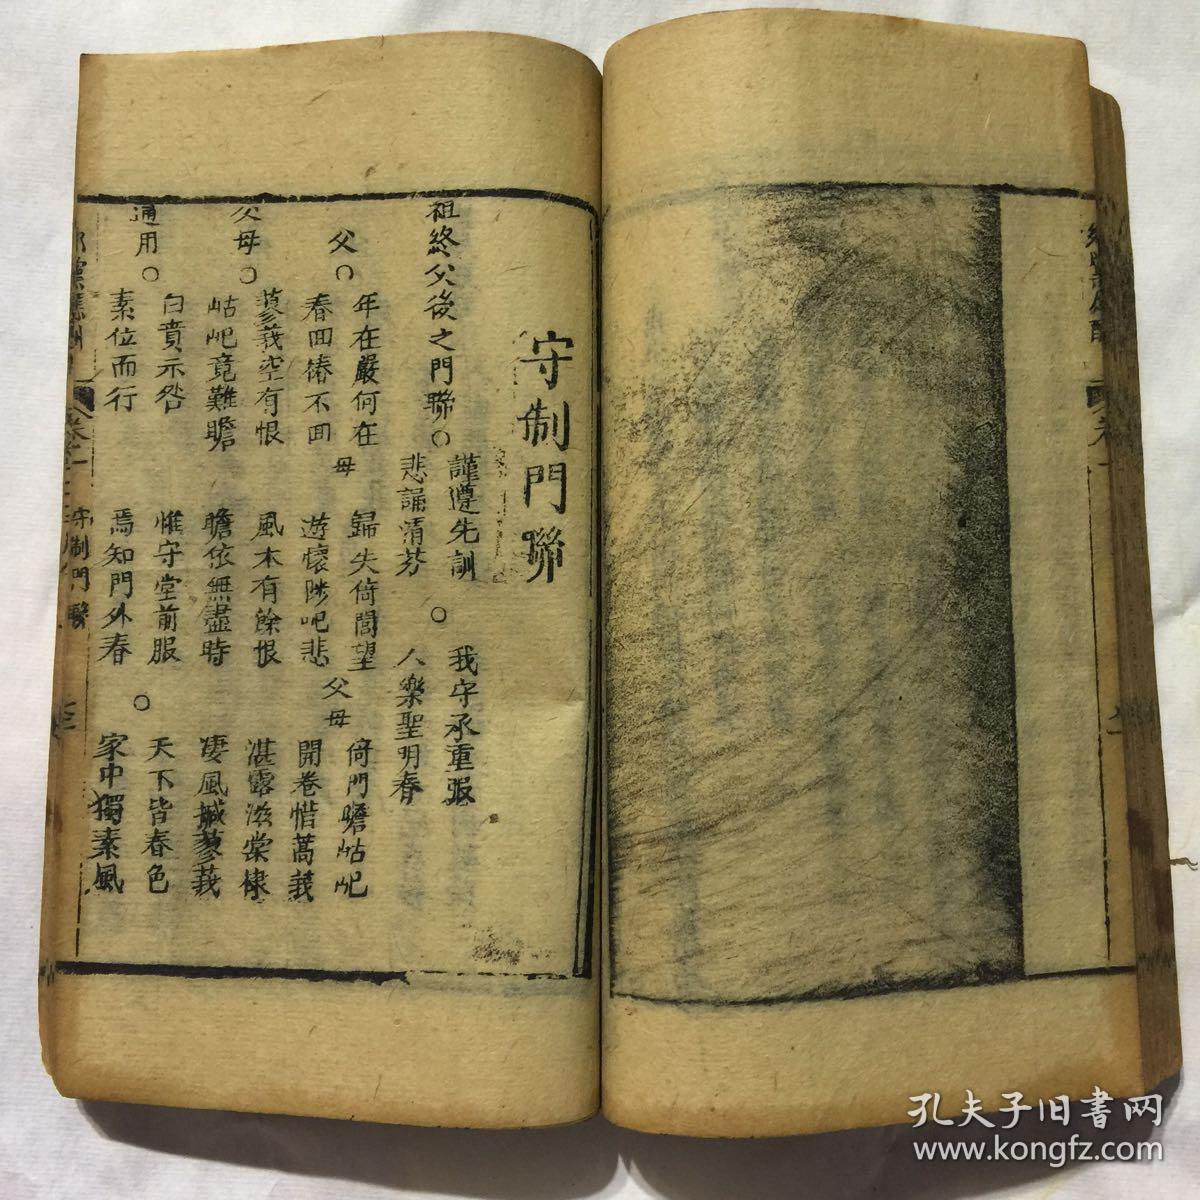 守制門聯
祖終父後之門聯○
謹遵先訓
悲誦清芬
○
我守承重服
人樂聖明春
父○
年在嚴何在
春回椿不回
母
歸失倚閭望
遊懷陟屺悲
父母
倚門瞻岵屺
開卷惜蒿莪
父母○
蓼莪空有恨
岵屺竟難瞻
風木有餘恨
瞻依無盡時
湛露滋棠棣
凄風撼蓼莪
通用○
白賁示咎
素位而行
惟守堂前服
焉知門外春
○
天下皆春色
家中獨素風
卷一
守制門聯
孔夫子旧書网
www.kongfz.com